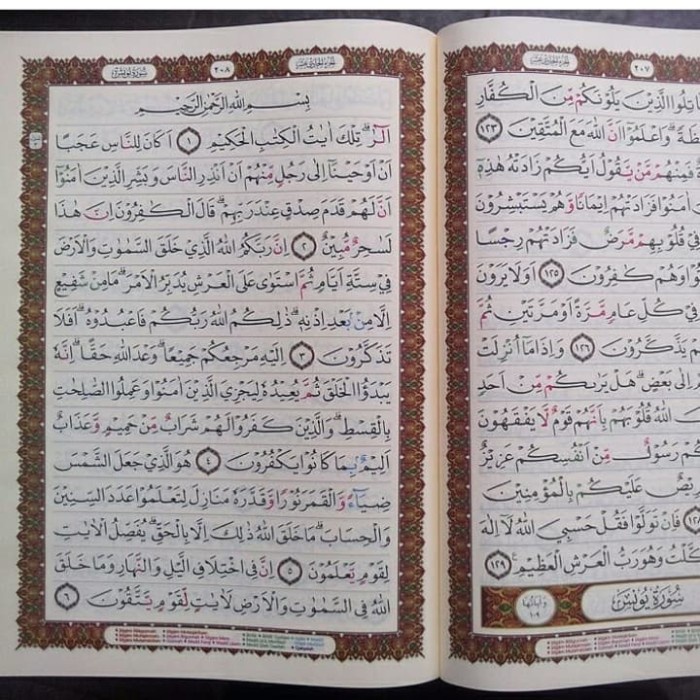 ٢٠٧ الجزء الحادي عشر
الَّذِيْنَ يَلُوْنَكُمْ مِّنَ الْكُفَّارِ
وَاعْلَمُوْٓا اَنَّ اللّٰهَ مَعَ الْمُتَّقِيْنَ ١٢٣
فَمِنْهُمْ مَّنْ يَّقُوْلُ اَيُّكُمْ زَادَتْهُ هٰذِهٖٓ
اٰمَنُوْا فَزَادَتْهُمْ اِيْمَانًا وَّهُمْ يَسْتَبْشِرُوْنَ
فِيْ قُلُوْبِهِمْ مَّرَضٌ فَزَادَتْهُمْ رِجْسًا
وَهُمْ كٰفِرُوْنَ ١٢٥ اَوَلَا يَرَوْنَ
فِيْ كُلِّ عَامٍ مَّرَّةً اَوْ مَرَّتَيْنِ ثُمَّ
يَذَّكَّرُوْنَ ١٢٦ وَاِذَا مَآ اُنْزِلَتْ
اِلٰى بَعْضٍۗ هَلْ يَرٰىكُمْ مِّنْ اَحَدٍ
اللّٰهُ قُلُوْبَهُمْ بِاَنَّهُمْ قَوْمٌ لَّا يَفْقَهُوْنَ
رَسُوْلٌ مِّنْ اَنْفُسِكُمْ عَزِيْزٌ
عَلَيْكُمْ بِالْمُؤْمِنِيْنَ
فَاِنْ تَوَلَّوْا فَقُلْ حَسْبِيَ اللّٰهُ لَآ اِلٰهَ
وَهُوَ رَبُّ الْعَرْشِ الْعَظِيْمِ ١٢٩
سُوْرَةُ يُوْنُسَ وَاٰيَاتُهَا ١٠٩
الجزء الحادي عشر ٢٠٨ سورة يونس
بِسْمِ اللّٰهِ الرَّحْمٰنِ الرَّحِيْمِ
الۤرٰ ۗ تِلْكَ اٰيٰتُ الْكِتٰبِ الْحَكِيْمِ ١ اَكَانَ لِلنَّاسِ عَجَبًا
اَنْ اَوْحَيْنَآ اِلٰى رَجُلٍ مِّنْهُمْ اَنْ اَنْذِرِ النَّاسَ وَبَشِّرِ الَّذِيْنَ اٰمَنُوْٓا
اَنَّ لَهُمْ قَدَمَ صِدْقٍ عِنْدَ رَبِّهِمْ ۗ قَالَ الْكٰفِرُوْنَ اِنَّ هٰذَا
لَسٰحِرٌ مُّبِيْنٌ ٢ اِنَّ رَبَّكُمُ اللّٰهُ الَّذِيْ خَلَقَ السَّمٰوٰتِ وَالْاَرْضَ
فِيْ سِتَّةِ اَيَّامٍ ثُمَّ اسْتَوٰى عَلَى الْعَرْشِ يُدَبِّرُ الْاَمْرَۗ مَا مِنْ شَفِيْعٍ
اِلَّا مِنْۢ بَعْدِ اِذْنِهٖۗ ذٰلِكُمُ اللّٰهُ رَبُّكُمْ فَاعْبُدُوْهُۗ اَفَلَا
تَذَكَّرُوْنَ ٣ اِلَيْهِ مَرْجِعُكُمْ جَمِيْعًاۗ وَعْدَ اللّٰهِ حَقًّاۗ اِنَّهٗ
يَبْدَؤُا الْخَلْقَ ثُمَّ يُعِيْدُهٗ لِيَجْزِيَ الَّذِيْنَ اٰمَنُوْا وَعَمِلُوا الصّٰلِحٰتِ
بِالْقِسْطِۗ وَالَّذِيْنَ كَفَرُوْا لَهُمْ شَرَابٌ مِّنْ حَمِيْمٍ وَّعَذَابٌ
اَلِيْمٌۢ بِمَا كَانُوْا يَكْفُرُوْنَ ٤ هُوَ الَّذِيْ جَعَلَ الشَّمْسَ
ضِيَاۤءً وَّالْقَمَرَ نُوْرًا وَّقَدَّرَهٗ مَنَازِلَ لِتَعْلَمُوْا عَدَدَ السِّنِيْنَ
وَالْحِسَابَۗ مَا خَلَقَ اللّٰهُ ذٰلِكَ اِلَّا بِالْحَقِّۗ يُفَصِّلُ الْاٰيٰتِ
لِقَوْمٍ يَّعْلَمُوْنَ ٥ اِنَّ فِى اخْتِلَافِ الَّيْلِ وَالنَّهَارِ وَمَا خَلَقَ
اللّٰهُ فِى السَّمٰوٰتِ وَالْاَرْضِ لَاٰيٰتٍ لِّقَوْمٍ يَّتَّقُوْنَ ٦